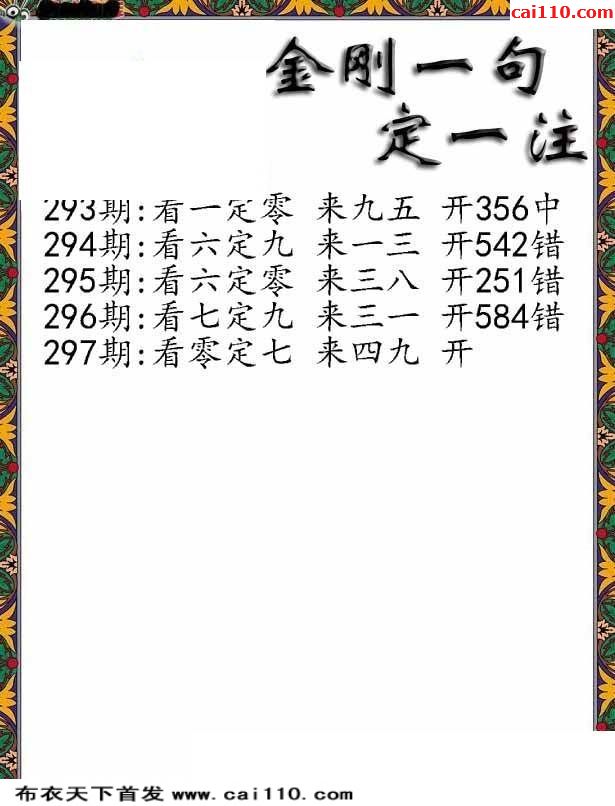 cai110.com
金刚一句
定一注
293期:看一定零 来九五 开356中
294期:看六定九 来一三 开542错
295期:看六定零 来三八 开251错
296期:看七定九 来三一 开584错
297期:看零定七 来四九 开
布衣天下首发 www.cai110.com